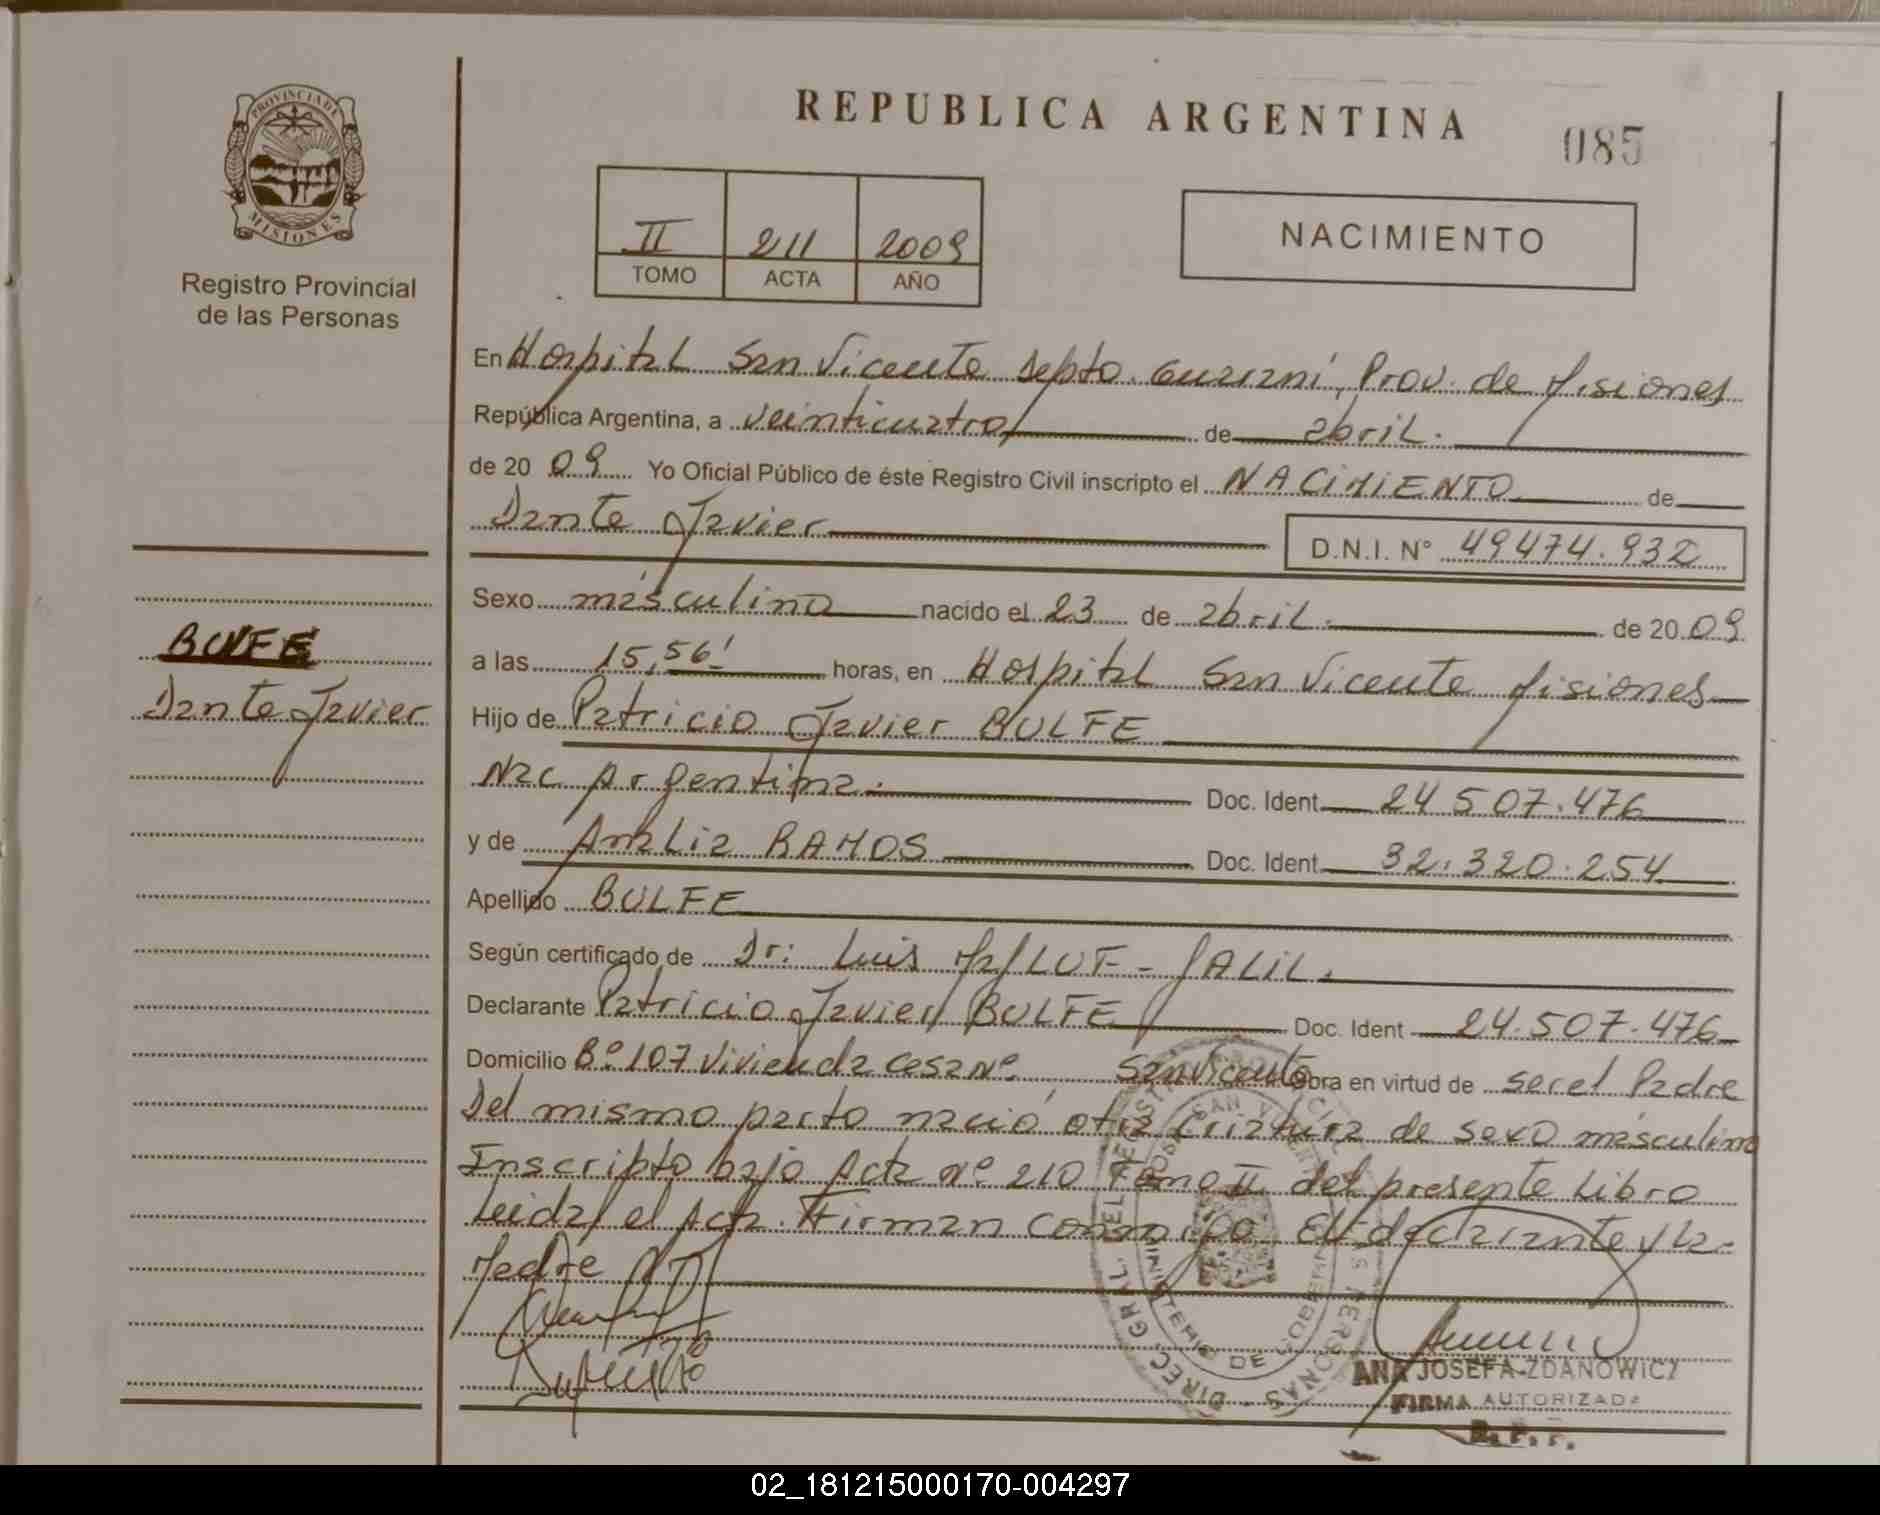 REPUBLICA ARGENTINA
085
PROVINCIA DE
MISIONES
Registro Provincial
de las Personas
II 211 2009
TOMO ACTA AÑO
NACIMIENTO
En Hospital San Vicente Depto. Guaraní, Prov. de Misiones
República Argentina, a veinticuatro de abril.
de 2009 Yo Oficial Público de éste Registro Civil inscripto el NACIMIENTO de
Dante Javier
D.N.I. Nº 49474.932
Sexo masculino nacido el 23 de abril. de 2009
BULFE
Dante Javier
a las 15,56' horas, en Hospital San Vicente Misiones
Hijo de Patricio Javier BULFE
Nac Argentina. Doc. Ident. 24.507.476
y de Analia RAMOS Doc. Ident. 32.320.254
Apellido BULFE
Según certificado de Dr: Luis MALUF - JALIL.
Declarante Patricio Javier BULFE Doc. Ident 24.507.476
Domicilio Bº 107 Vivienda Casa Nº San Vicente Obra en virtud de ser el Padre
Del mismo parto nació otra criatura de sexo masculino
Inscripto bajo Acta Nº 210 Tomo II del presente Libro
Leida el Acta. Firman conmigo El declarante y la
Madre
DIREC. GRAL. DEL REGISTRO PROVINCIAL DE LAS PERSONAS
SAN VICENTE
MINISTERIO DE GOBIERNO
ANA JOSEFA ZDANOWICZ
FIRMA AUTORIZADA
02_181215000170-004297